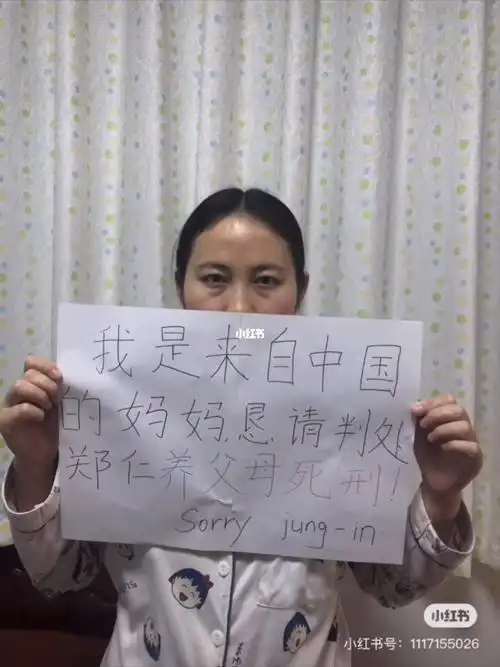 小红书
我是来自中国
的妈妈,恳请判处
郑仁养父母死刑!
Sorry jung-in
小红书
小红书号: 1117155026